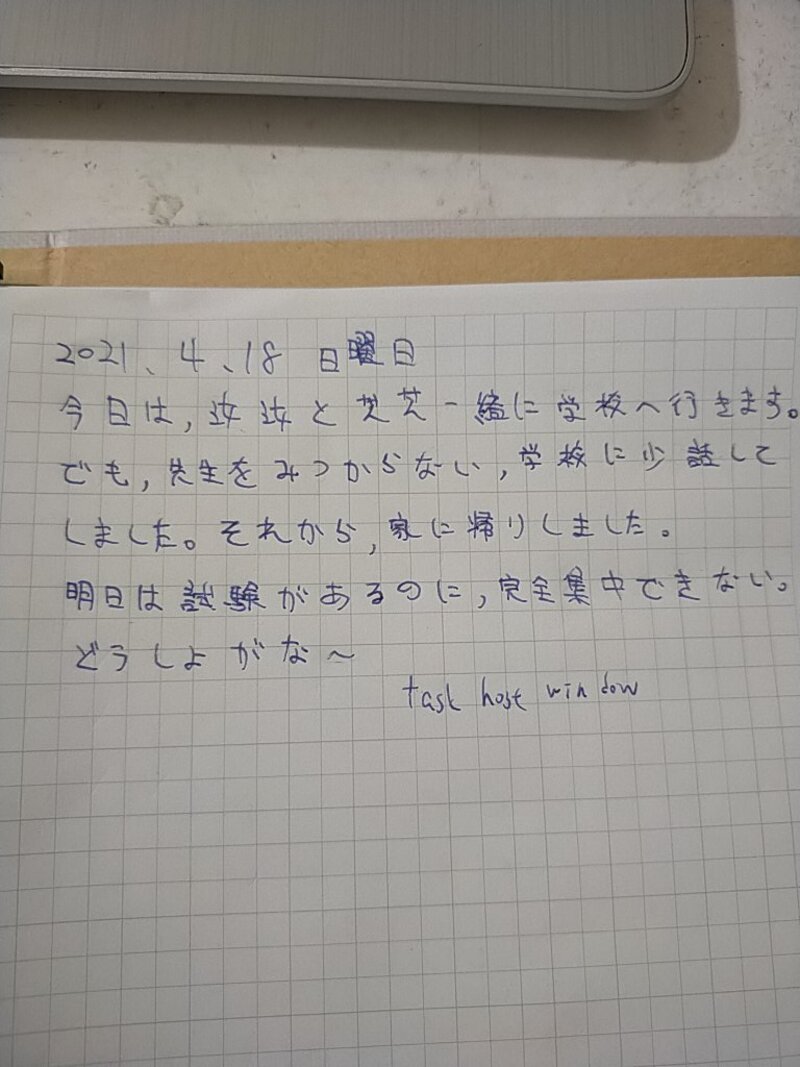 2021、4、18 日曜日
今日は,と芝芝一緒に学校へ行きます。
でも,先生をみつからない,学校に少話して
しました。それから,家に帰りしました。
明日は試験があるのに,完全集中できない。
どうしよがな～
task host window